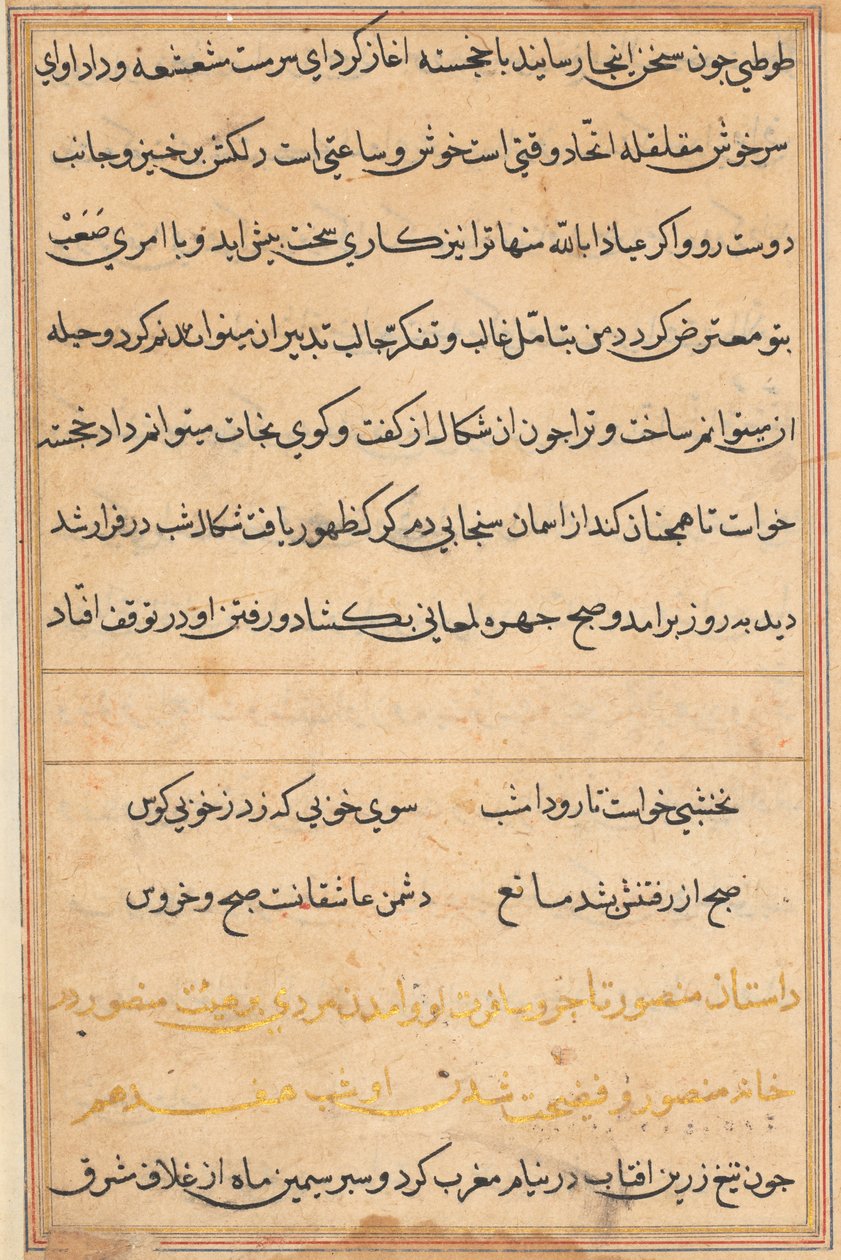 طوطي جون سخن اينجا رسايند با خجسته اغاز كرد اي سرمست مشعشعه و داد اواي
سرخوش مقلقله اتّحاد وقتي است خوش و ساعتي است دلكش برخيز و جانب
دوست رو و اكر عياذا بالله منها ترا نيز كاري سخت بيش ايد و با امري صَعَبْ
بتو معترض كردد من بتامّل غالب و تفكرّ جالب تدبير ان ميتوانم كرد و حيله
ان ميتوانم ساخت و ترا جون ان شكال از كفت و كوي نجات ميتوانم داد خجسته
خواست تا همجنان كند از اسمان سنجابي دم كرك ظهور يافت شكال شب در فرار شد
ديد به روز برامد و صبح جهره لمعاني بكشاد و رفتن او در توقف افتاد
نخشبي خواست تا رود امشب سوي خوبي كه زد ز خوبي كوس
صبح از رفتنش بشد مانع دشمن عاشقانت صبح و خروس
داستان منصور تاجر و مسافرت او و امدن مردي بر هيئت منصور در
خانه منصور و فضيحت شدن او شب هفدهم
جون تيغ زرين افتاب در نيام مغرب كرد و سبر سيمين ماه از غلاف شرق